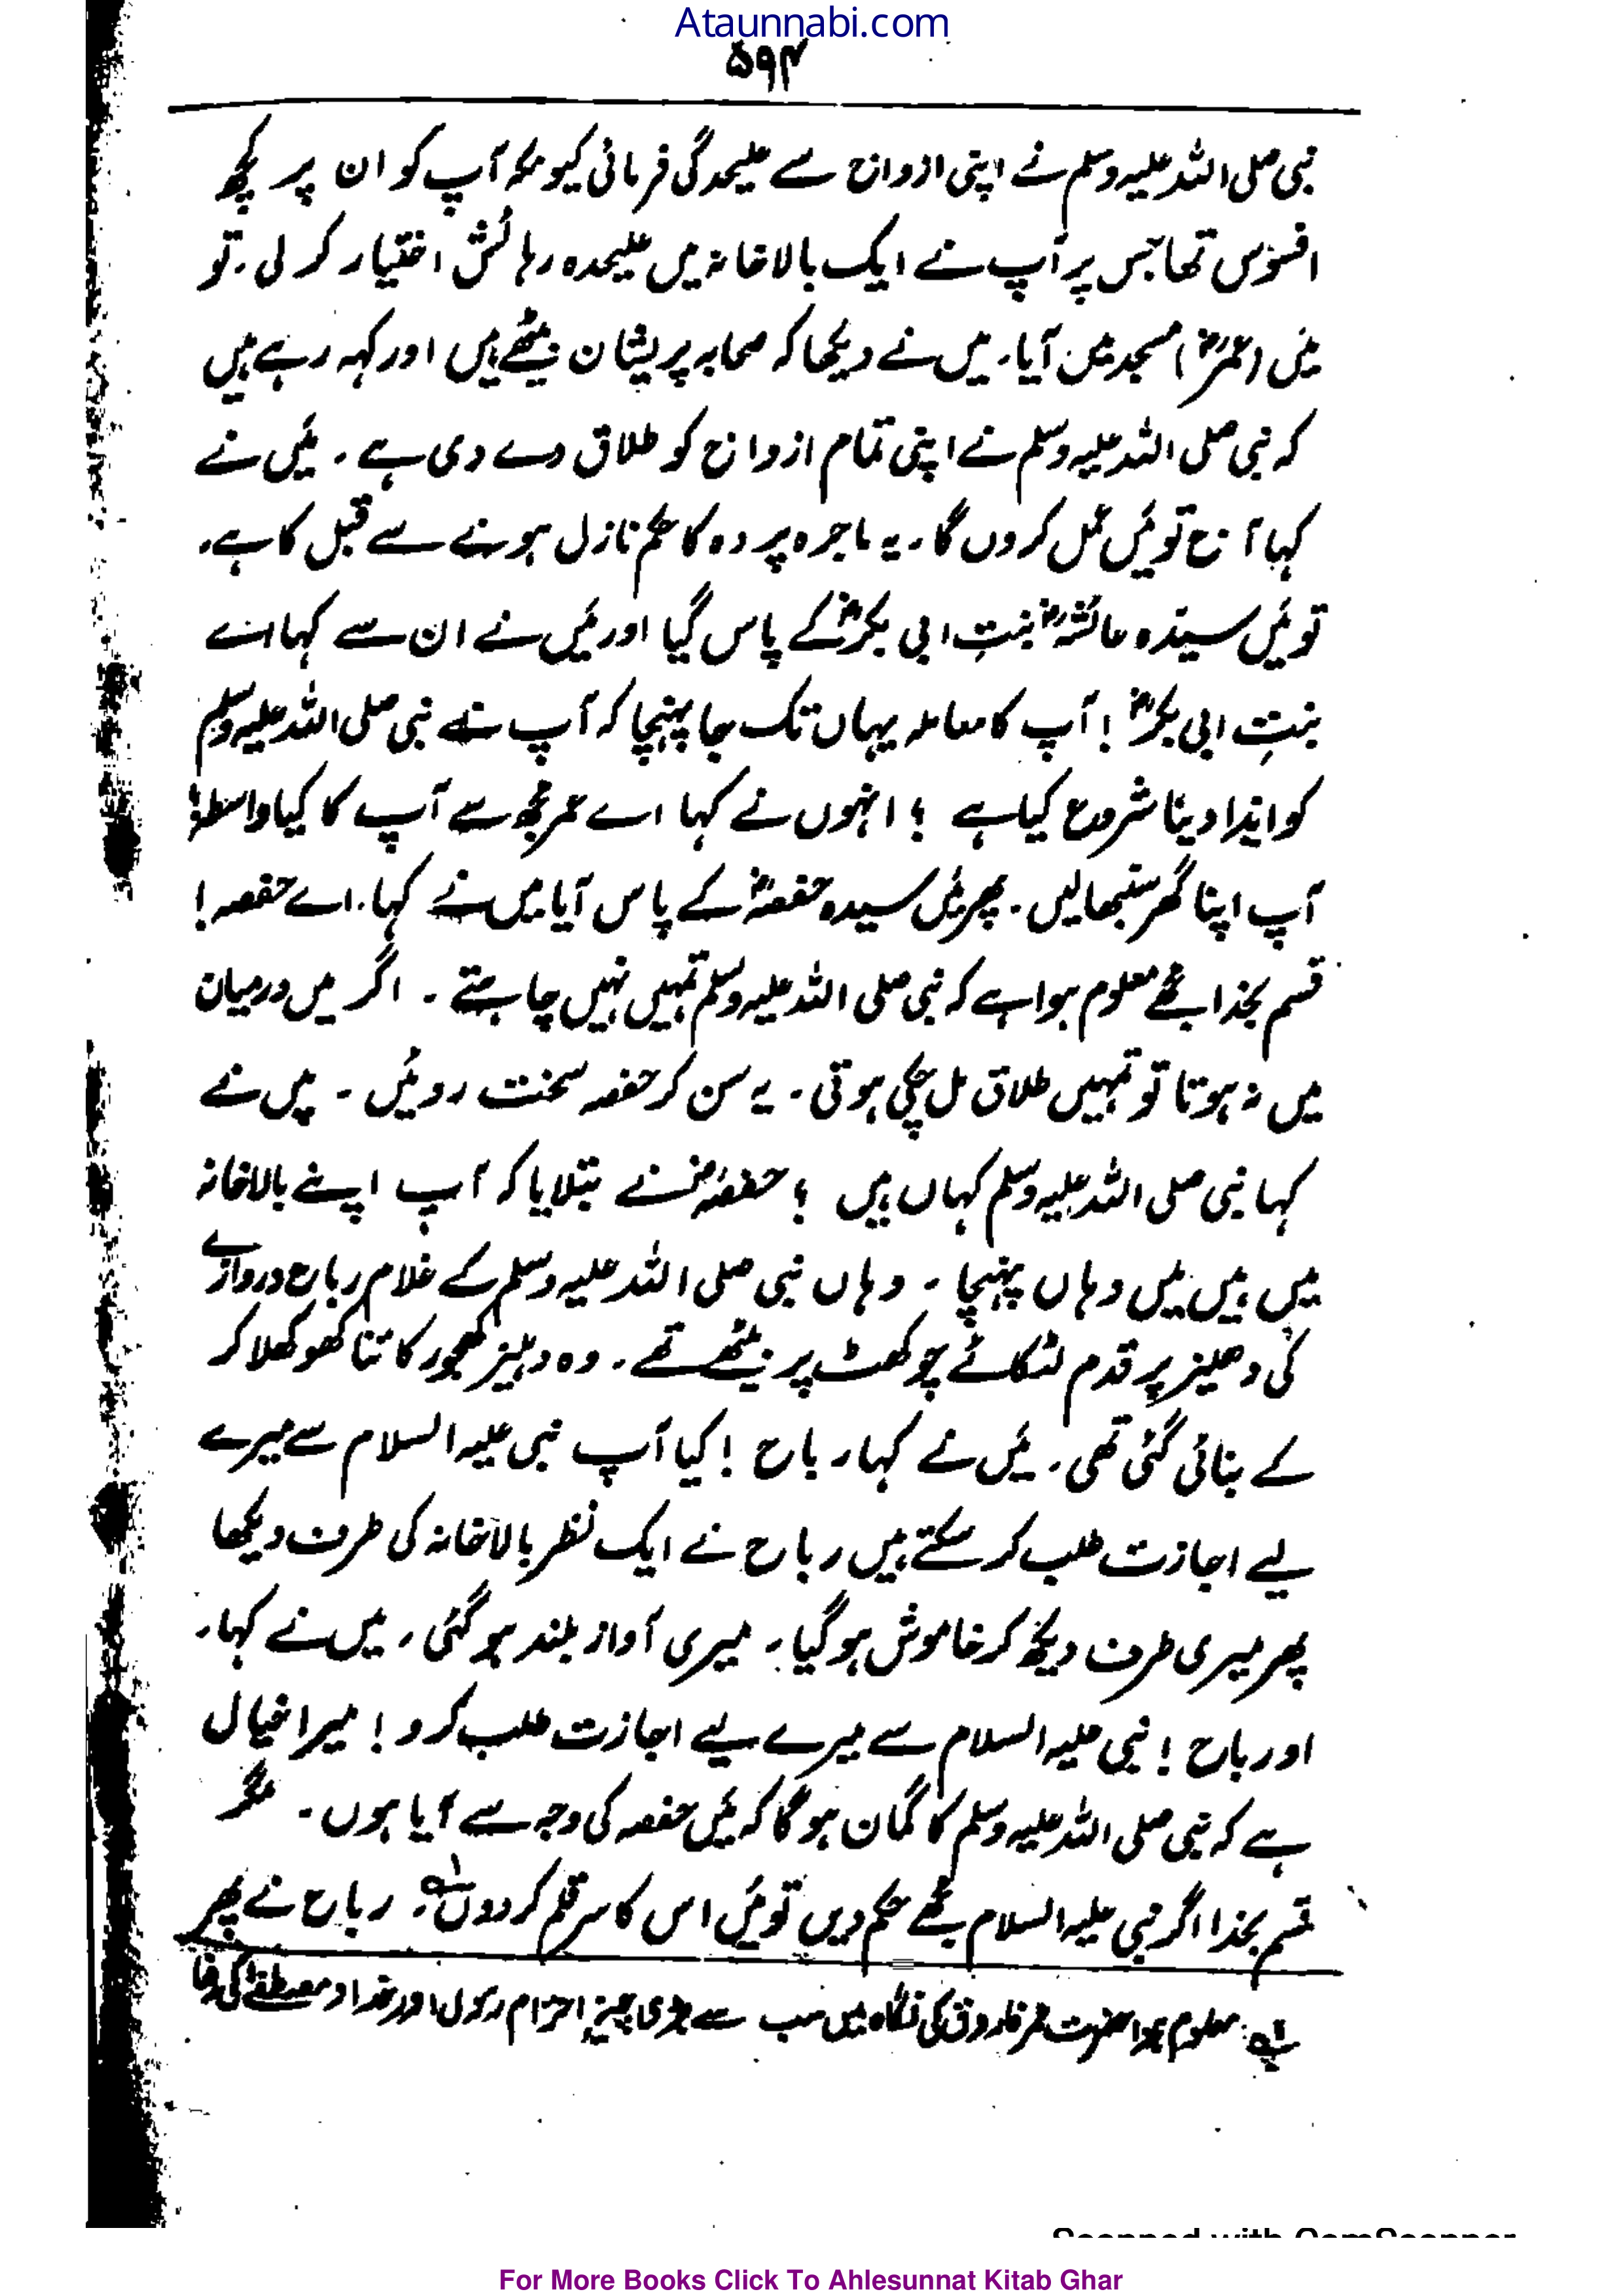 Ataunnabi.com
۵۹۴
نبی صلی اللہ علیہ وسلم نے اپنی ازواج سے علیحدگی فرمائی کیونکہ آپ کو ان پر کچھ
افسوس تھا جس پر آپ نے ایک بالاخانہ میں علیحدہ رہائش اختیار کر لی۔ تو
میں (عمرؓ) مسجد میں آیا۔ میں نے دیکھا کہ صحابہ پریشان بیٹھے ہیں اور کہہ رہے ہیں
کہ نبی صلی اللہ علیہ وسلم نے اپنی تمام ازواج کو طلاق دے دی ہے۔ میں نے
کہا آج تو میں عمل کروں گا۔ یہ ماجرہ پردہ کا حکم نازل ہونے سے قبل کا ہے۔
تو میں سیدہ عائشہؓ بنتِ ابی بکرؓ کے پاس گیا اور میں نے ان سے کہا اے
بنتِ ابی بکرؓ! آپ کا معاملہ یہاں تک جا پہنچا کہ آپ نے نبی صلی اللہ علیہ وسلم
کو ایذا دینا شروع کیا ہے ؟ انہوں نے کہا اے عمر مجھ سے آپ کا کیا واسطہ؟
آپ اپنا گھر سنبھالیں۔ پھر میں سیدہ حفصہؓ کے پاس آیا میں نے کہا۔ اے حفصہ!
قسم بخدا مجھے معلوم ہوا ہے کہ نبی صلی اللہ علیہ وسلم تمہیں نہیں چاہتے۔ اگر میں درمیان
میں نہ ہوتا تو تمہیں طلاق مل چکی ہوتی۔ یہ سن کر حفصہ سخت روئیں۔ میں نے
کہا نبی صلی اللہ علیہ وسلم کہاں ہیں ؟ حفصہؓ نے بتلایا کہ آپ اپنے بالاخانہ
میں ہیں میں وہاں پہنچا۔ وہاں نبی صلی اللہ علیہ وسلم کے غلام رباح دروازے
کی دھلیز پر قدم لٹکائے چوکھٹ پر بیٹھے تھے۔ وہ دہلیز کھجور کا تنا کھوکھلا کر
کے بنائی گئی تھی۔ میں نے کہا رباح! کیا آپ نبی علیہ السلام سے میرے
لیے اجازت طلب کر سکتے ہیں رباح نے ایک نظر بالاخانہ کی طرف دیکھا
پھر میری طرف دیکھ کر خاموش ہو گیا۔ میری آواز بلند ہو گئی۔ میں نے کہا۔
او رباح! نبی علیہ السلام سے میرے لیے اجازت طلب کرو! میرا خیال
ہے کہ نبی صلی اللہ علیہ وسلم کا گمان ہو گا کہ میں حفصہ کی وجہ سے آیا ہوں۔ مگر
قسم بخدا اگر نبی علیہ السلام مجھے حکم دیں تو میں اس کا سر قلم کر دوں لہ۔ رباح نے پھر
لہ: معلوم ہوا حضرت عمر فاروق کی نگاہ میں سب سے بڑی چیز احترام رسول اور خدا و مصطفےٰ کی رضا
Scanned with CamScanner
For More Books Click To Ahlesunnat Kitab Ghar